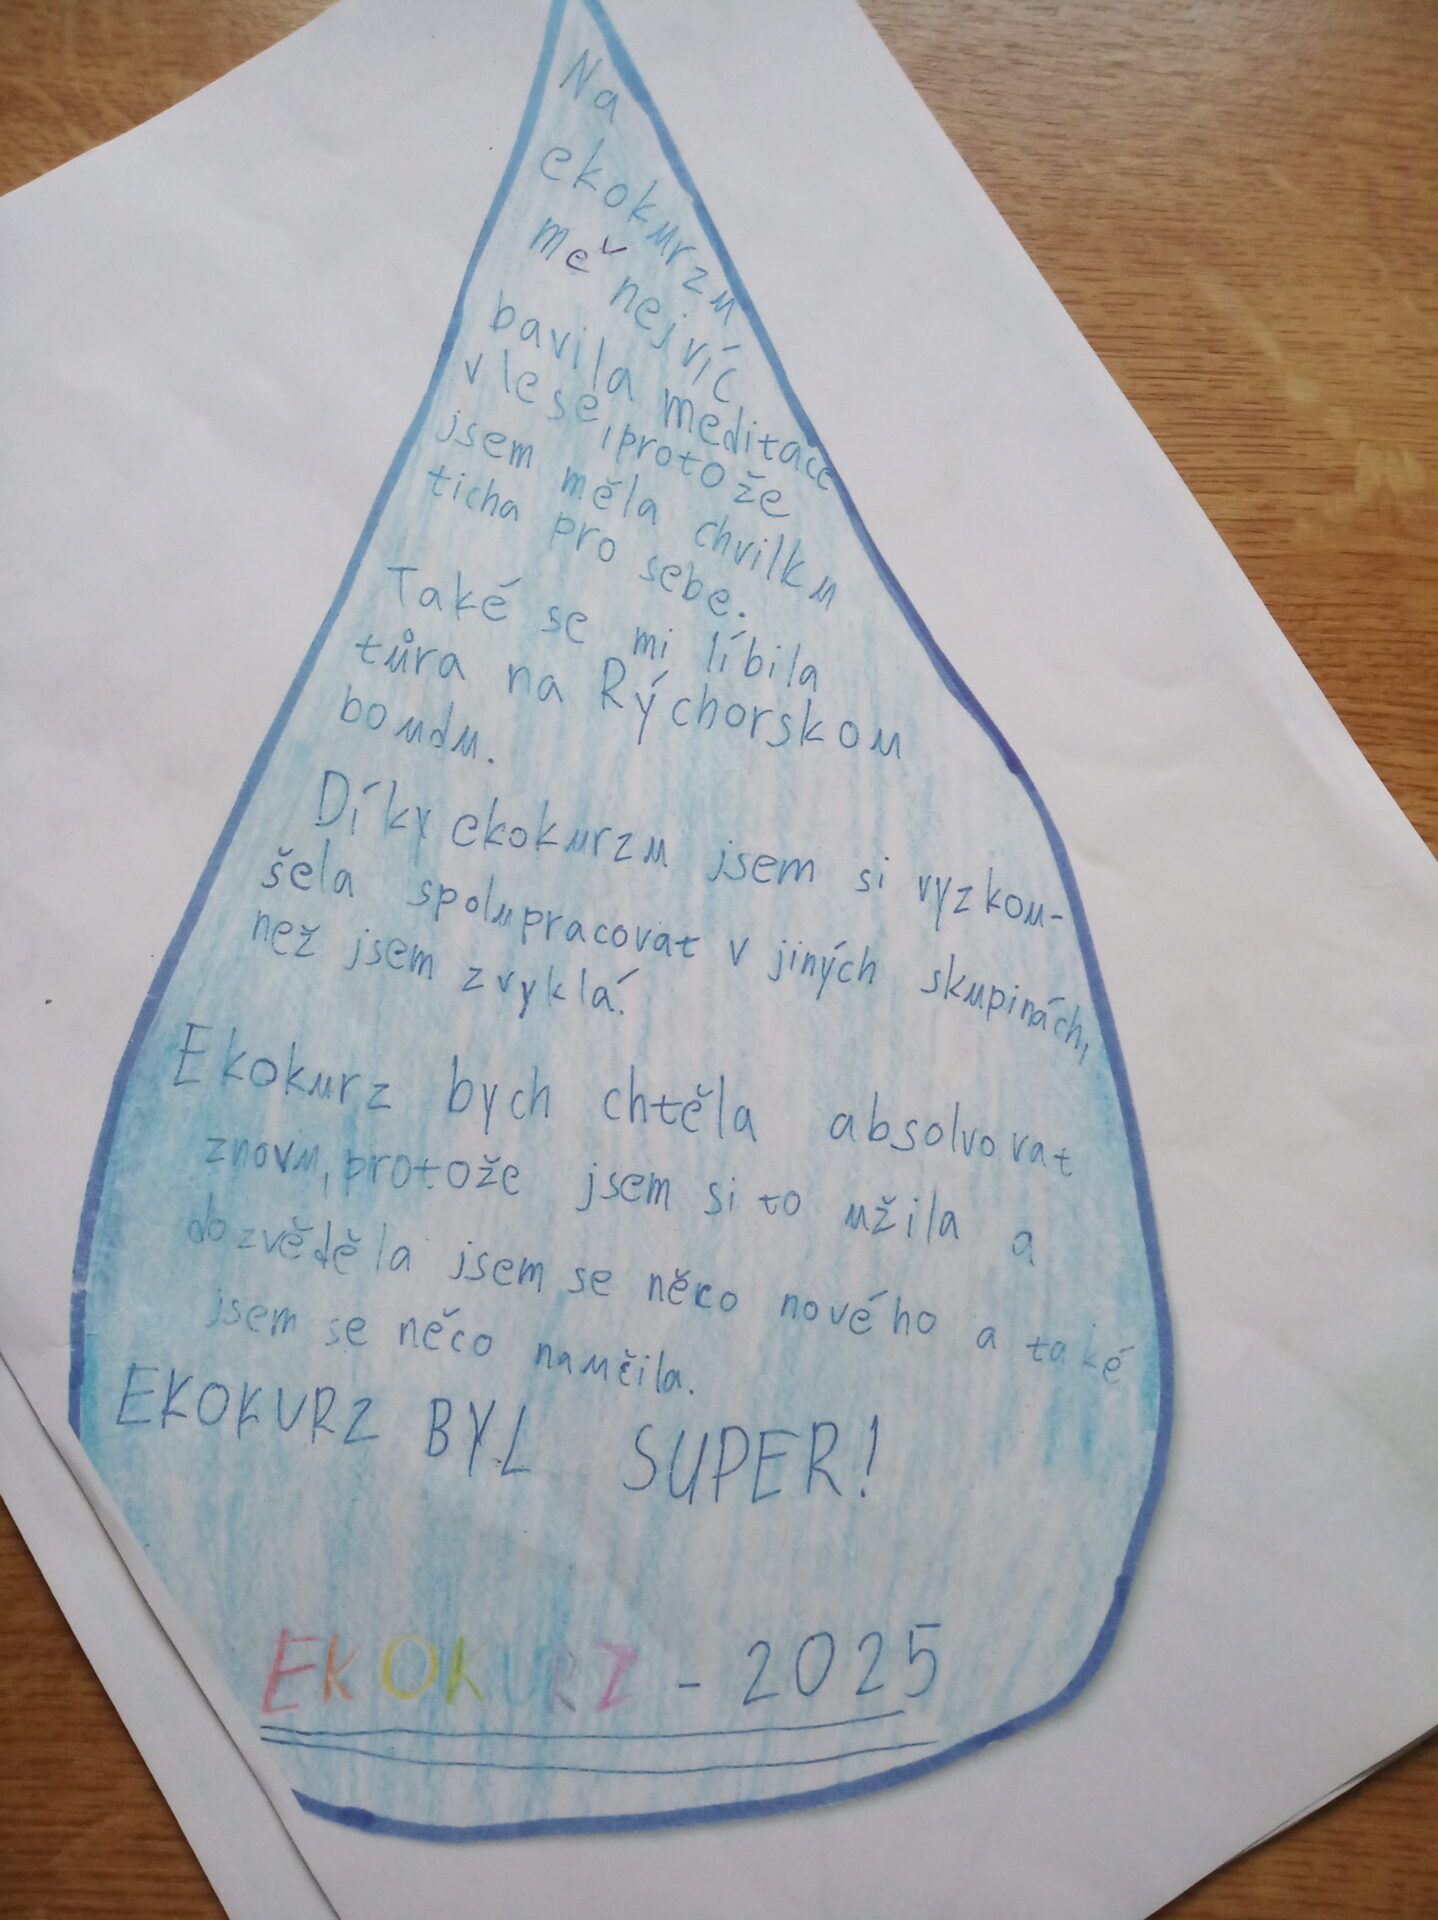 Na
ekokurzu
mě nejvíc
bavila meditace
v lese, protože
jsem měla chvilku
ticha pro sebe.
Také se mi líbila
tůra na Rýchorskou
boudu.
Díky ekokurzu jsem si vyzkou-
šela spolupracovat v jiných skupinách,
než jsem zvyklá.
Ekokurz bych chtěla absolvovat
znovu, protože jsem si to užila a
dozvěděla jsem se něco nového a také
jsem se něco naučila.
EKOKURZ BYL SUPER!
EKOKURZ - 2025